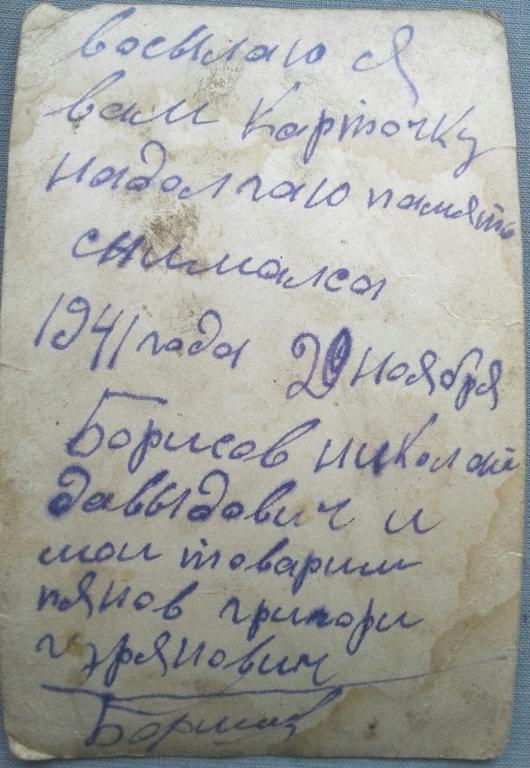 восылаю я
вам карточку
надолгаю память
снимался
1941 года 20 ноября
Борисов николай
давыдович и
мои товарищ
пянов григори
гурянович
Борисов